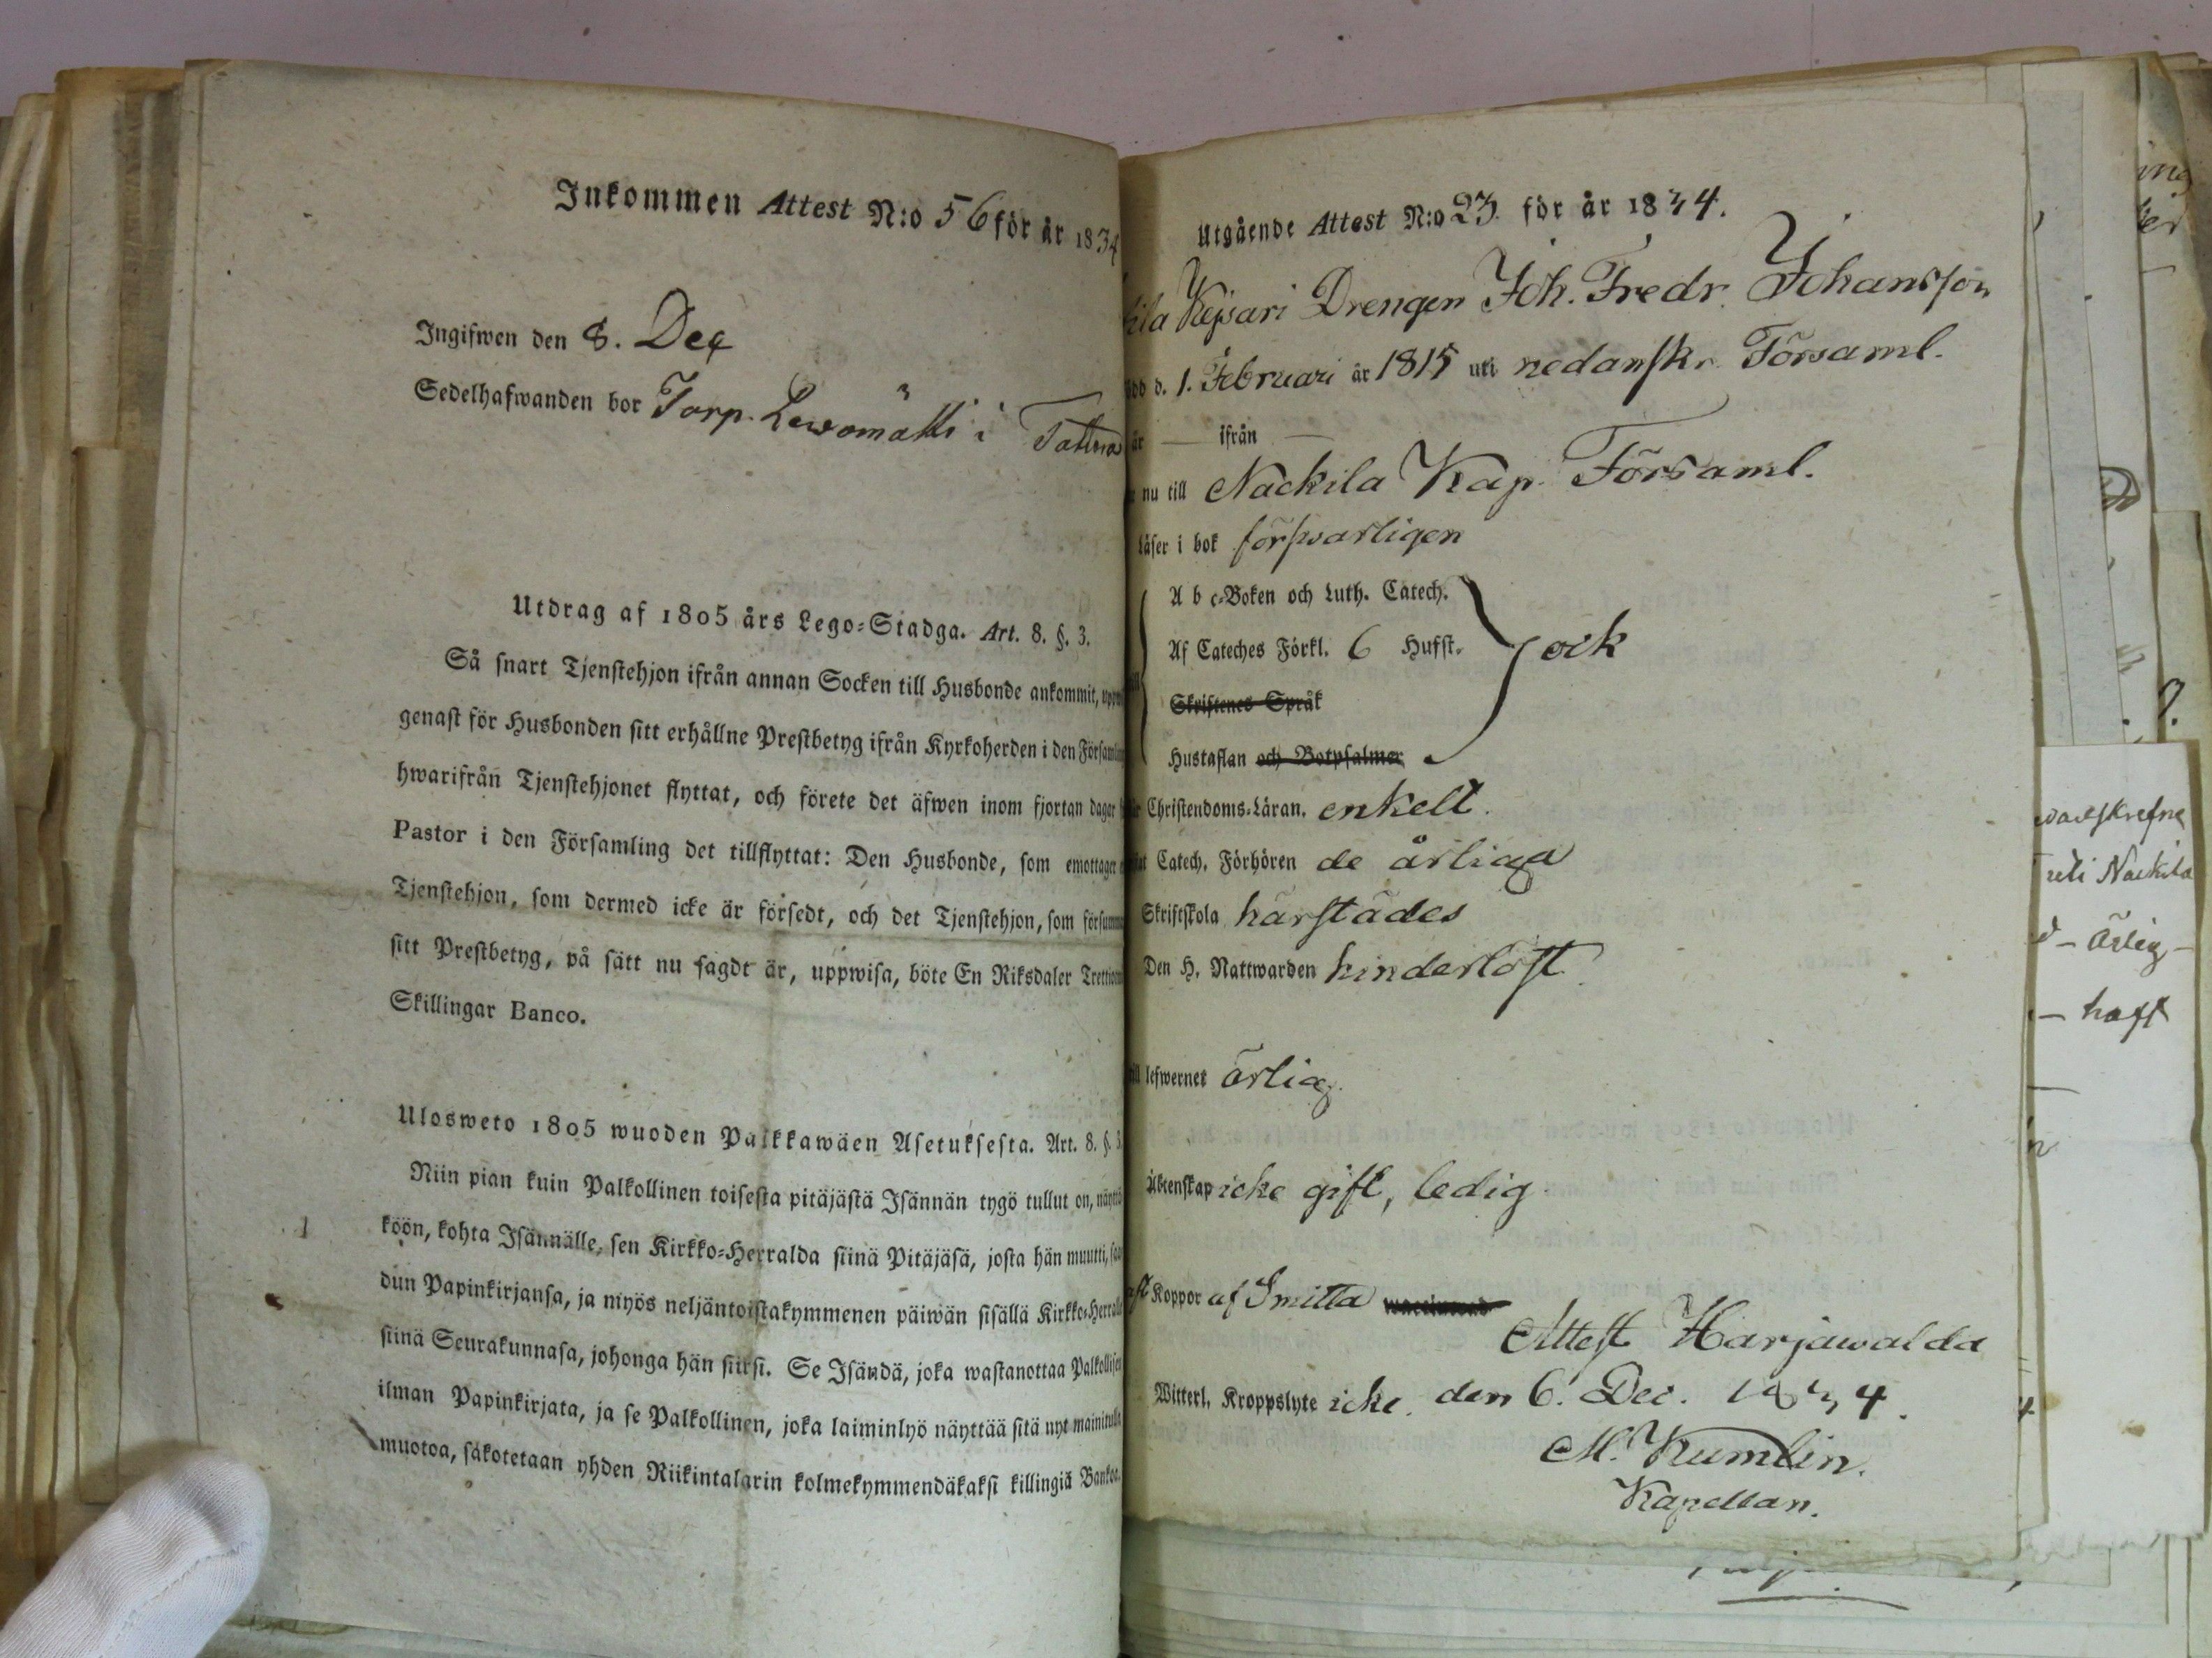 Inkommen Attest N:o 56 för år 1834
Ingifwen den 8. Dec
Sedelhafwanden bor Torp. Lewomäkki i
Utdrag af 1805 års Lego-Stadga. Art. 8. §. 3.
Så snart Tjenstehjon ifrån annan Socken till Husbonde ankommit,
genast för Husbonden sitt erhållne Prestbetyg ifrån Kyrkoherden i den
hwarifrån Tjenstehjonet flyttat, och förete det äfwen inom fjortan dagar
Pastor i den Församling det tillflyttat: Den Husbonde, som emottager
Tjenstehjon, som dermed icke är försedt, och det Tjenstehjon, som
sitt Prestbetyg, på sätt nu sagdt är, uppwisa, böte En Riksdaler
Skillingar Banco.
Ulosweto 1805 wuoden Palkkawäen Asetuksesta. Art. 8. §. 3.
Niin pian kuin Palkollinen toisesta pitäjästä Isännän tygö tullut on,
köön, kohta Isännälle, sen Kirkko-Herralda siinä Pitäjäsä, josta hän muutti,
dun Papinkirjansa, ja myös neljäntoistakymmenen päiwän sisällä
siinä Seurakunnasa, johonga hän siirsi. Se Isändä, joka wastanottaa
ilman Papinkirjata, ja se Palkollinen, joka laiminlyö näyttää sitä nyt
muotoa, sakotetaan yhden Riikintalarin kolmekymmendäkaksi killingiä
Utgående Attest N:o 23. för år 1834.
Drengen Joh. Fredr. Johansson
d. 1. Februari år 1815 uti nedanskr. Församl.
år — ifrån —
nu till Nackila Kap. Församl.
läser i bok förswarligen
A b c-Boken och Luth. Catech.
Af Cateches Förkl. 6 Hufst. ock
Skriftenes Språk
Hustaflan och Botpsalmer
Christendoms-Läran. enkelt.
Catech. Förhören de årliga
Skriftskola härstädes
Den H. Nattwarden hinderlöst.
lefwernet ärlig.
Äktenskap icke gift, ledig.
Koppor af Smitta
Attest Harjawalda
Witterl. Kroppslyte icke. den 6. Dec. 1834.
M. Kumlin.
Kapellan.
uti Nackila
haft